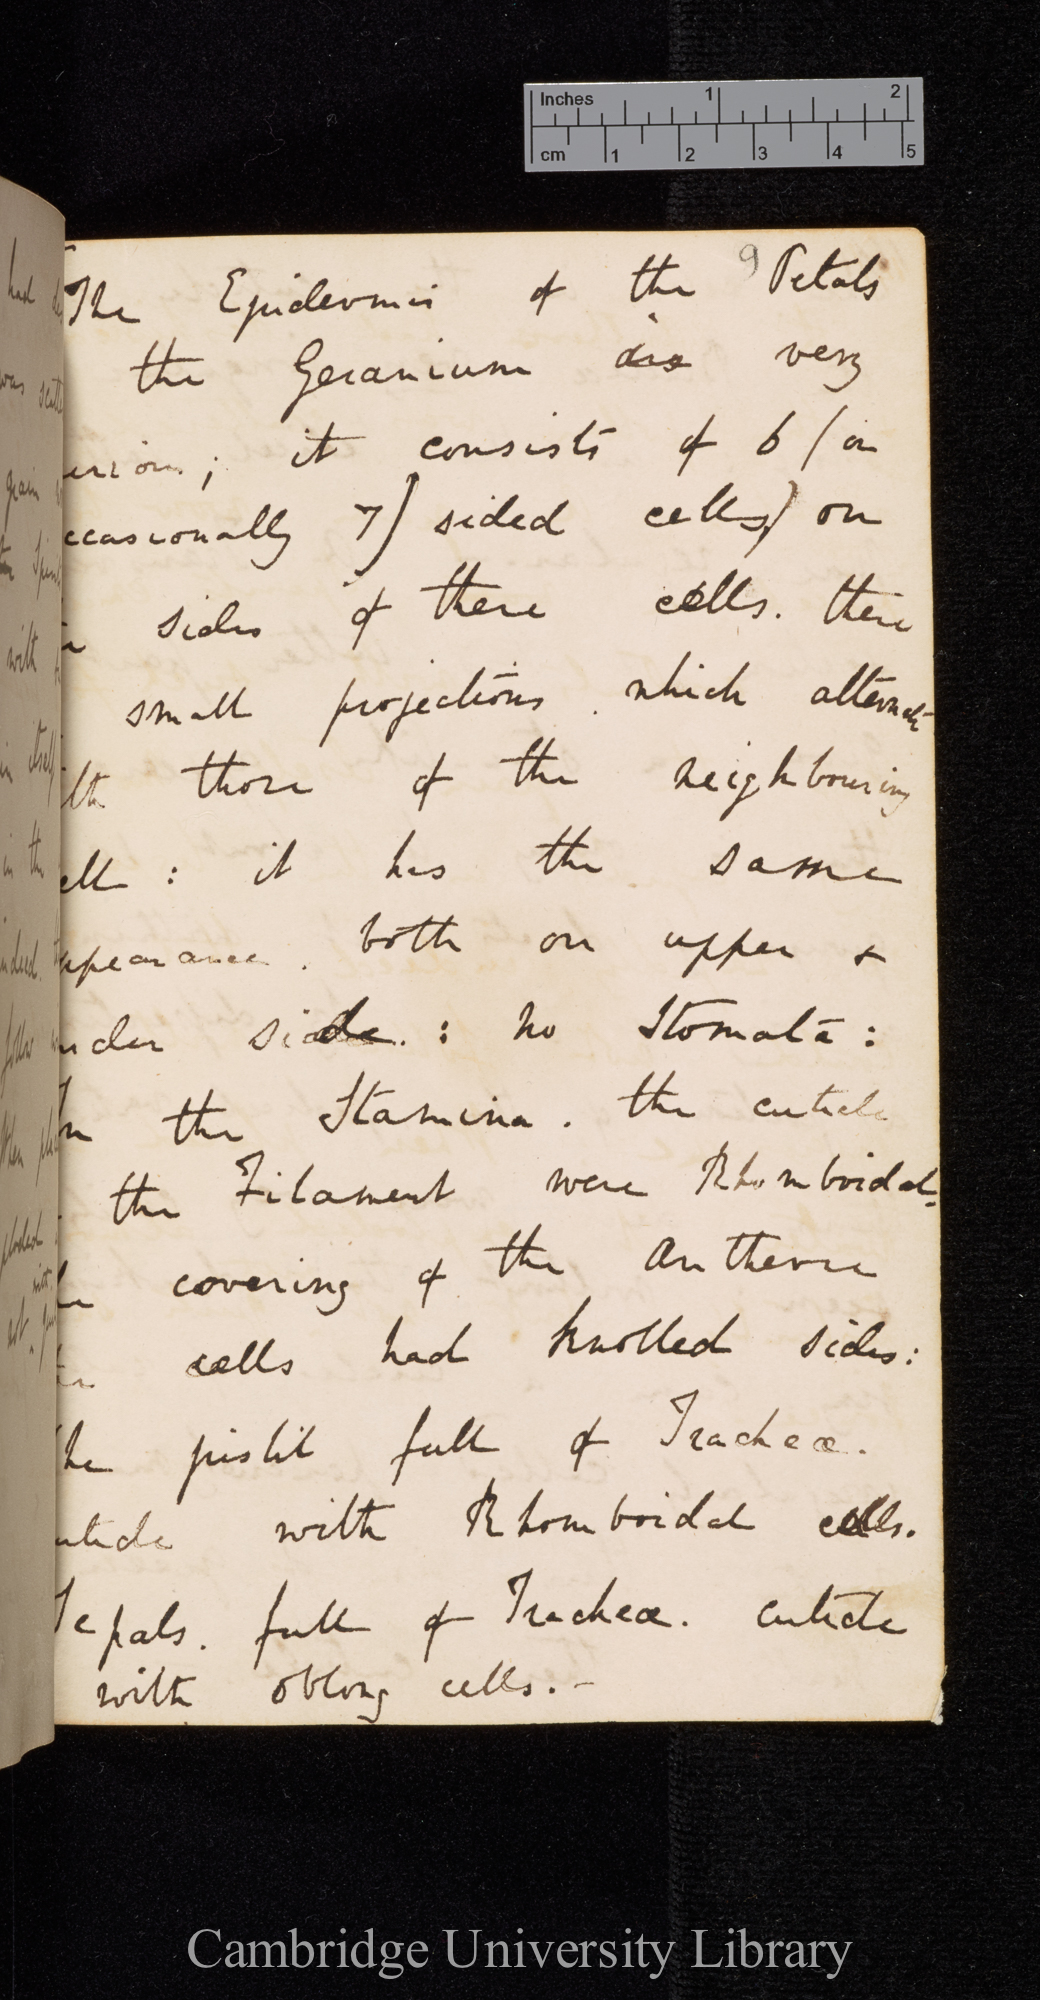 Inches 1 2
cm 1 2 3 4 5
9
The Epidermis of the Petals
the Geranium is very
urious; it consists of 6 (or
ccasionally 7) sided cells) on
sides of these cells. there
small projections which alternate
ith those of the neighbouring
ell : it has the same
ppearance. both on upper &
nder side. : no Stomata :
In the Stamina. the cuticle
the Filament were Rhomboidal.
he covering of the Antheræ
the cells had knotted sides:
The pistil full of Tracheæ.
uticle with Rhomboidal cells.
Sepals. full of Tracheæ. cuticle
with oblong cells. –
had
was
grain
with
in itself
in the
indeed.
follow
Cambridge University Library